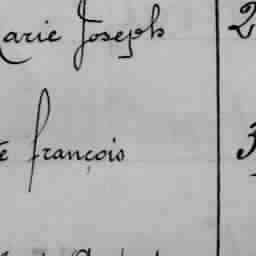 Marie Joseph 2
françois 3